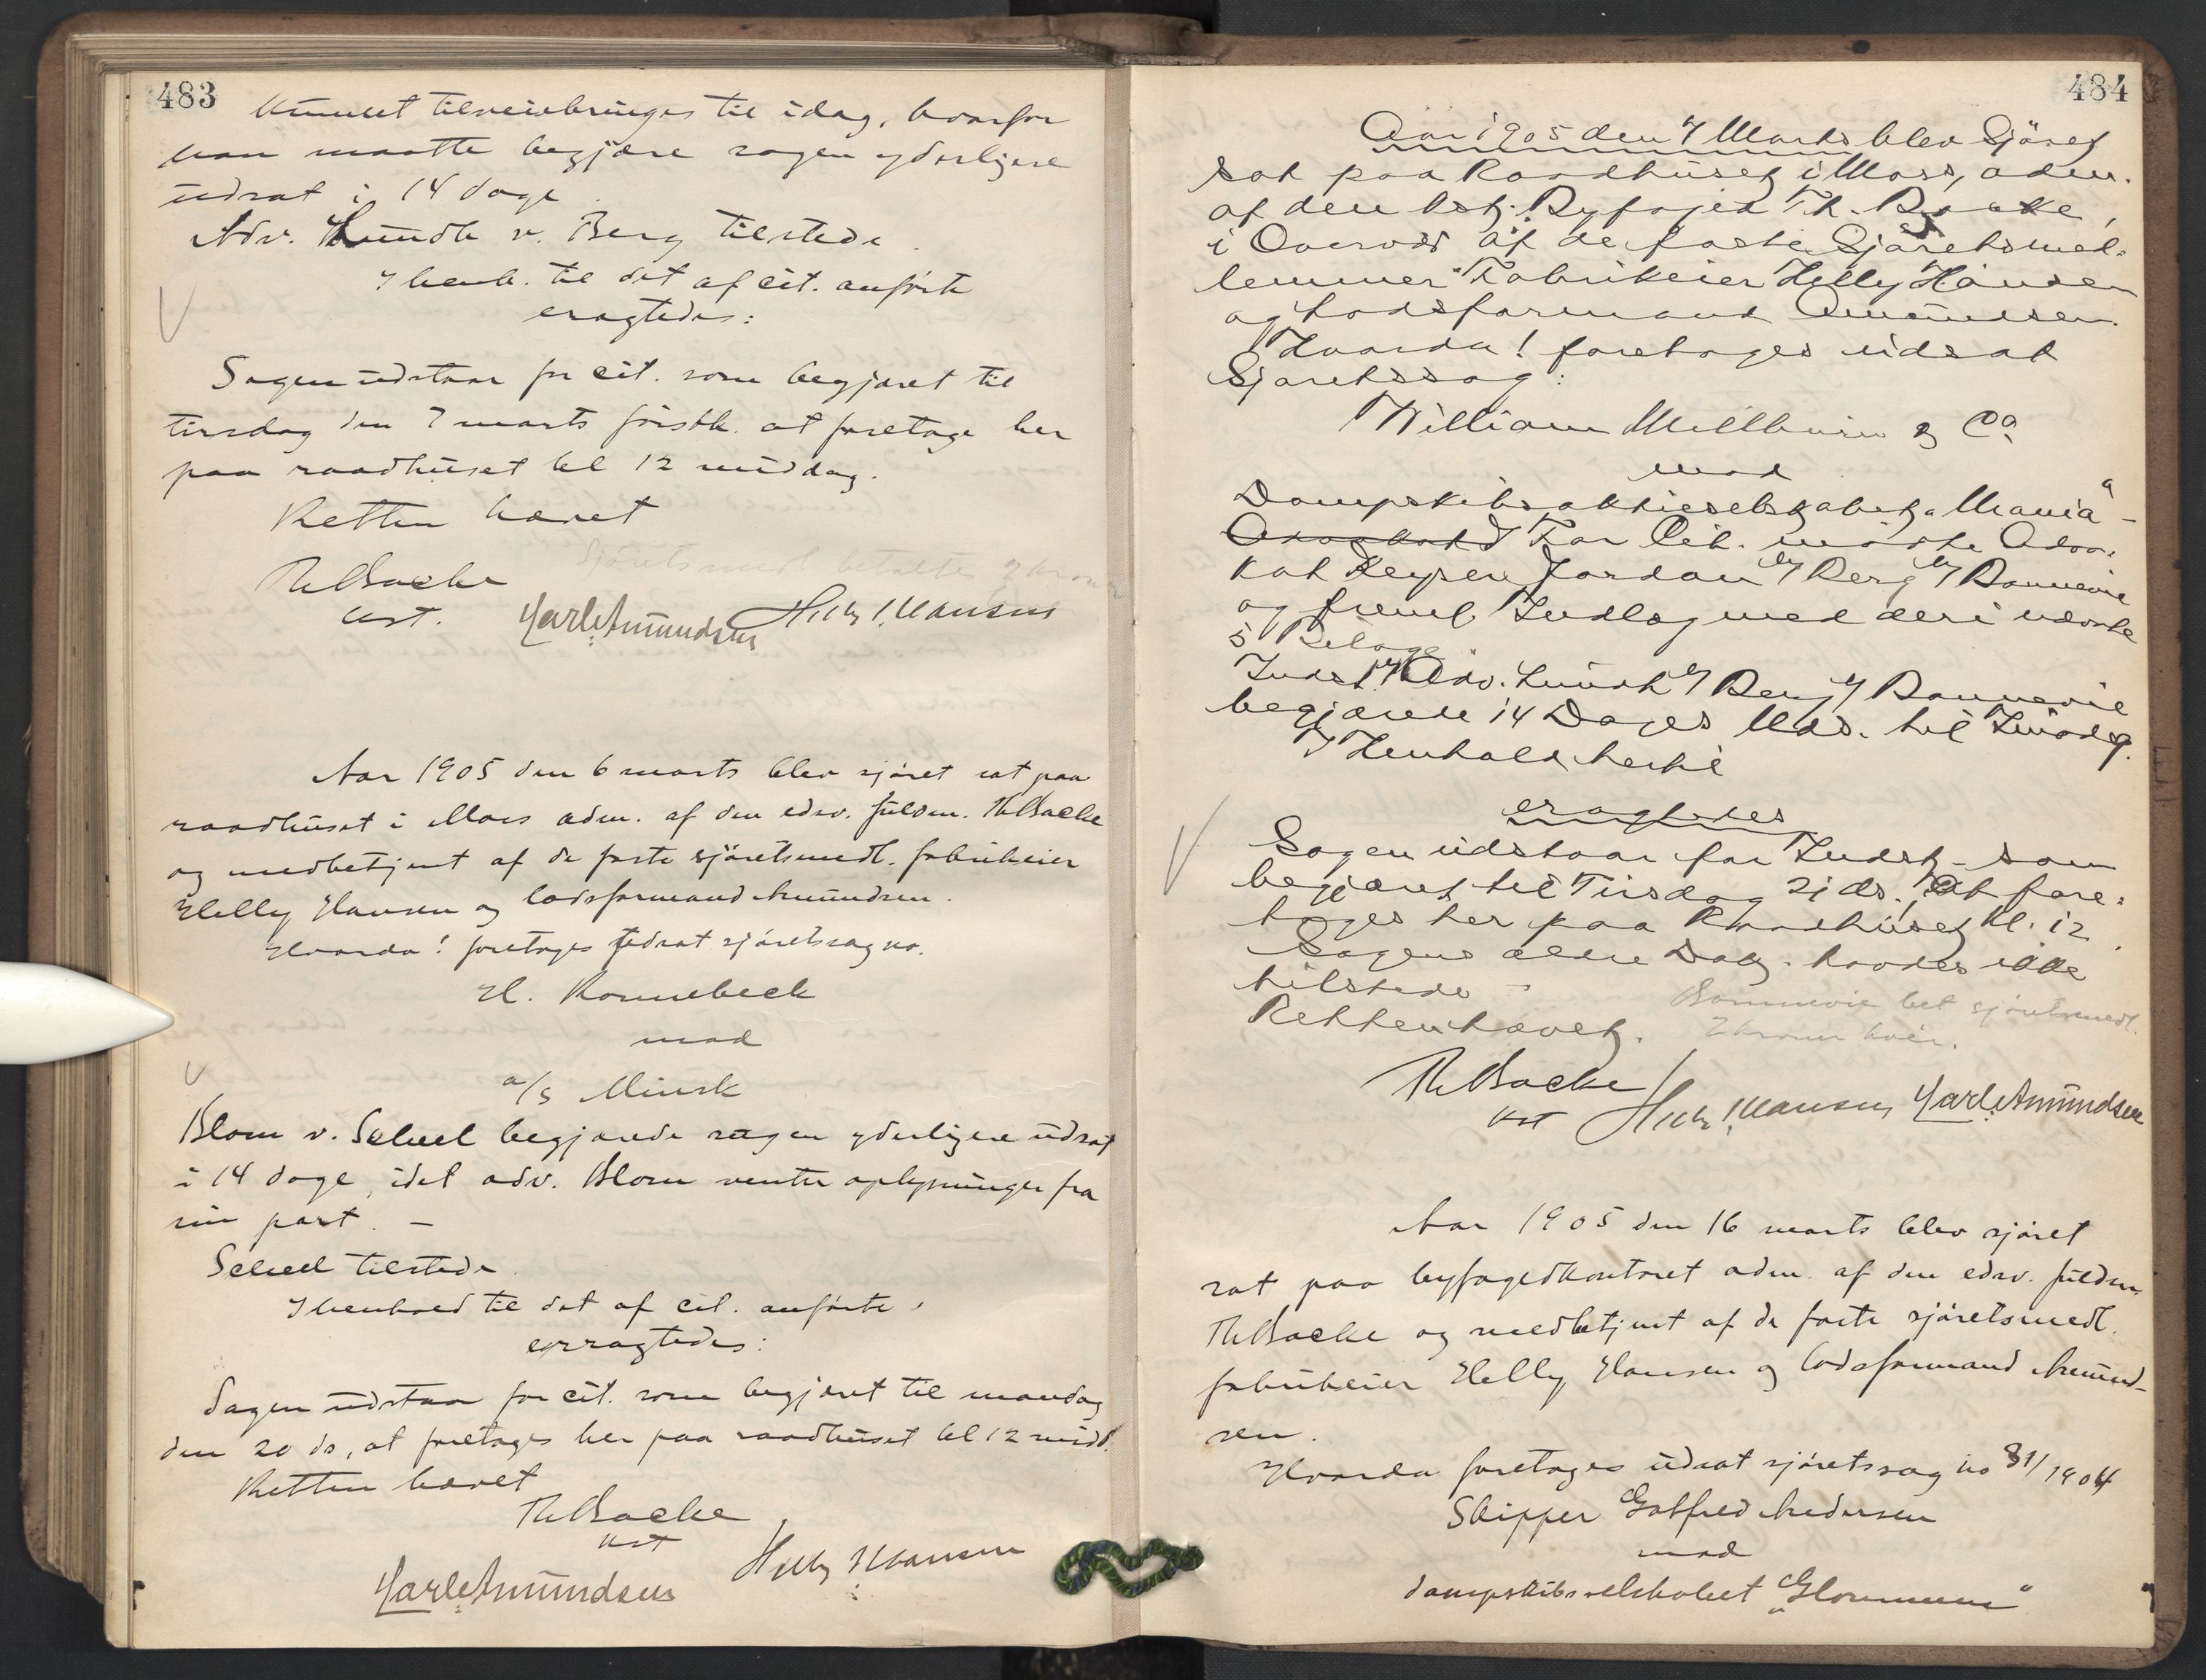 483
kunnet tilveiebringes til idag, hvorfor
han maatte begjære sagen yderligere
udsat i 14 dage.
Adv. Lundh v. Berg tilstede.
I henh. til det af cit. anførte
eragtedes:
Sagen udstaar for cit. som begjæret til
tirsdag den 7 marts førstk. at foretage her
paa raadhuset kl 12 middag.
Retten hævet
Sjøretsmedl betaltes 2 kroner
ThBacke
kst.
Karl Amundsen Helly J. Hansen
Aar 1905 den 6 marts blev sjøret sat paa
raadhuset i Moss adm. af den edsv. fuldm. ThBacke
og medbetjent af de faste sjøretsmedl. fabrikeier
Helly Hansen og lodsformand Amundsen.
Hvorda! foretages udsat sjøretssag no.
H. Ronnebeck
mod
a/s Minsk
Blom v. Scheel begjærede sagen yderligere udsat
i 14 dage, idet adv. Blom venter oplysninger fra
sin part. —
Scheel tilstede
I henhold til det af cit. anførte,
eragtedes:
Sagen udstaar for cit. som begjæret til mandag
den 20 ds, at foretages her paa raadhuset kl 12 midd.
Retten hævet
ThBacke
kst
Karl Amundsen Helly J Hansen
484
Aar 1905 den 7 Marts blev Sjøret
sat paa Raadhuset i Moss, adm.
af den kst. Byfoged Th. Backe,
i Overvær af de faste Sjøretsmed-
lemmer Fabrikeier Helly Hansen
og Lodsformand Amundsen.
Hvorda! foretages udsat
Sjøretssag:
William Millburn & Co
mod
Dampskibsaktieselskabet "Mania" -
For Cit. mødte Advo-
kat Keyser Jordan v/ Berg v/ Bonnevie
og freml. Indlæg med deri nævnte
5 Bilage
Indst. v/ Adv. Lundh v/ Berg v/ Bonnevie
begjærede 14 Dages Uds. til Tilsvar.
I Henhold hertil
eragtedes
Sagen udstaar for Indst. som
begjæret til Tirsdag 21 ds., at fore-
tages her paa Raadhuset Kl. 12.
Sagens ældre Dok. havdes ikke
tilstede
Retten hævet.
Bonnevie bet sjøretsmedl.
2 kroner hver.
ThBacke
kst Helly J. Hansen Karl Amundsen
Aar 1905 den 16 marts blev sjøret
sat paa byfogedkontoret adm. af den edsv. fuldm.
ThBacke og medbetjent af de faste sjøretsmedl.
fabrikeier Helly Hansen og lodsformand Amund-
sen.
Hvorda foretages udsat sjøretssag no 31/1904
Skipper Gotfred Andersen
mod
dampskibsselskabet "Glommen"